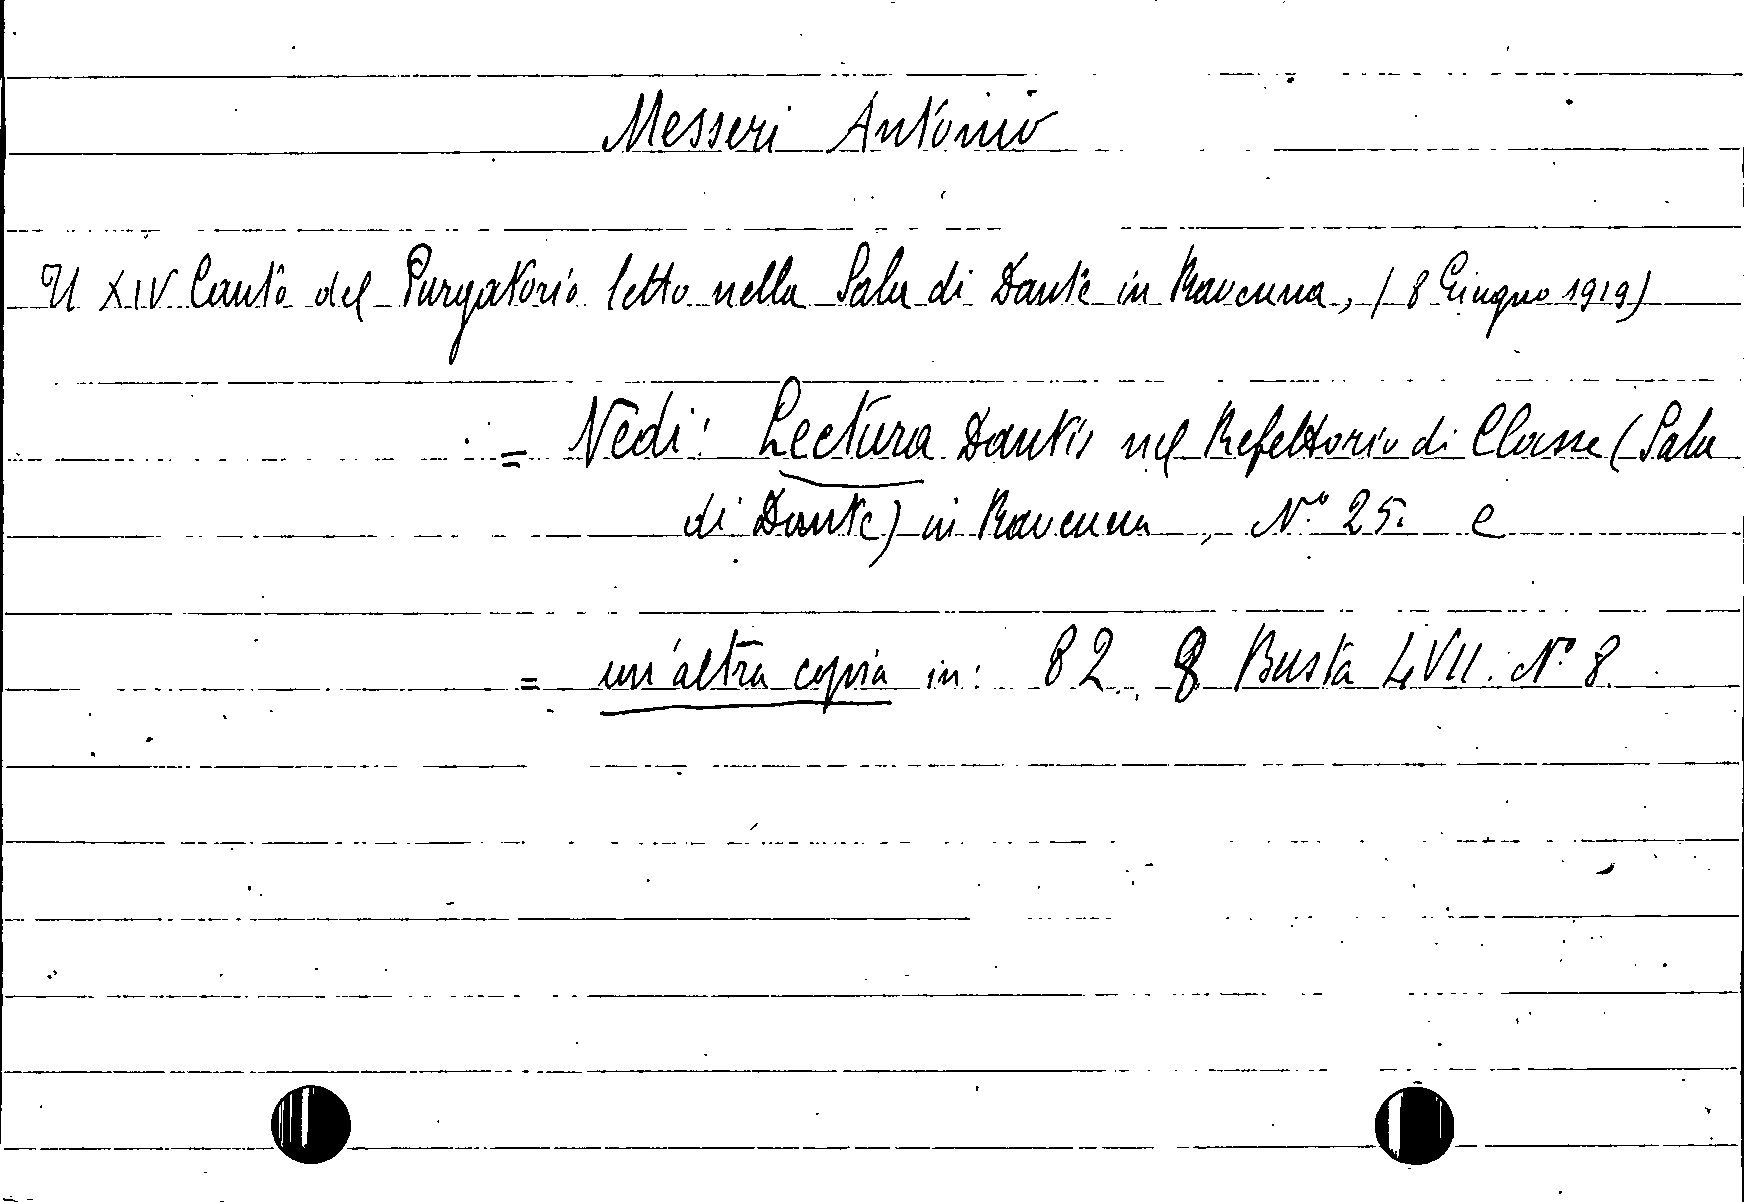 Messeri Antonio
Il XIV Canto del Purgatorio letto nella Sala di Dante in Ravenna, (8 Giugno 1919)
= Vedi: Lectura Dantis nel Refettorio di Classe (Sala
di Dante) in Ravenna, N.° 25. e
= un'altra copia in: 82. 8 Busta LVII. N.° 8.